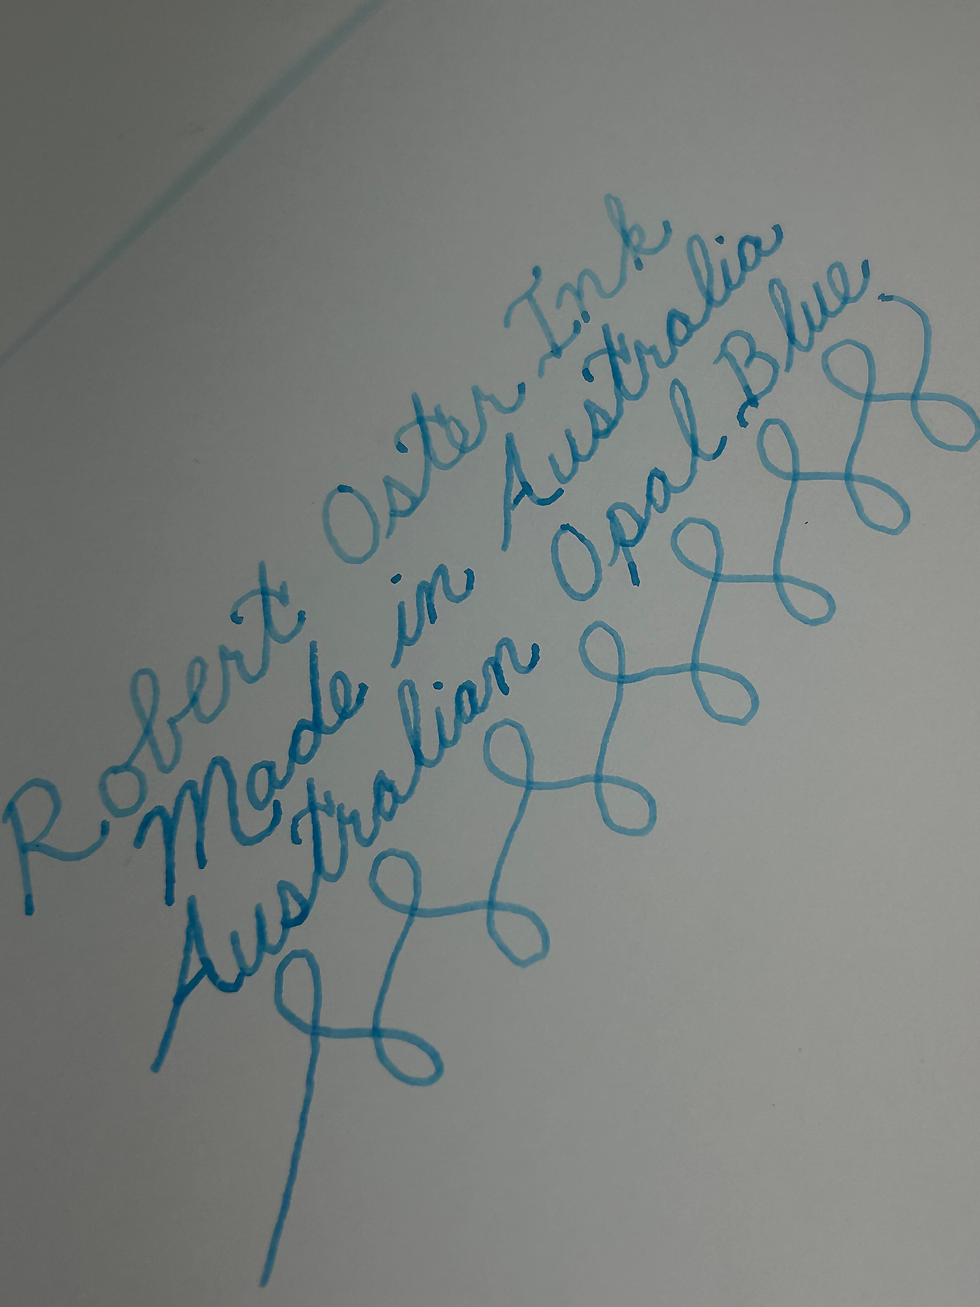 Robert Oster Ink
Made in Australia
Australian Opal Blue